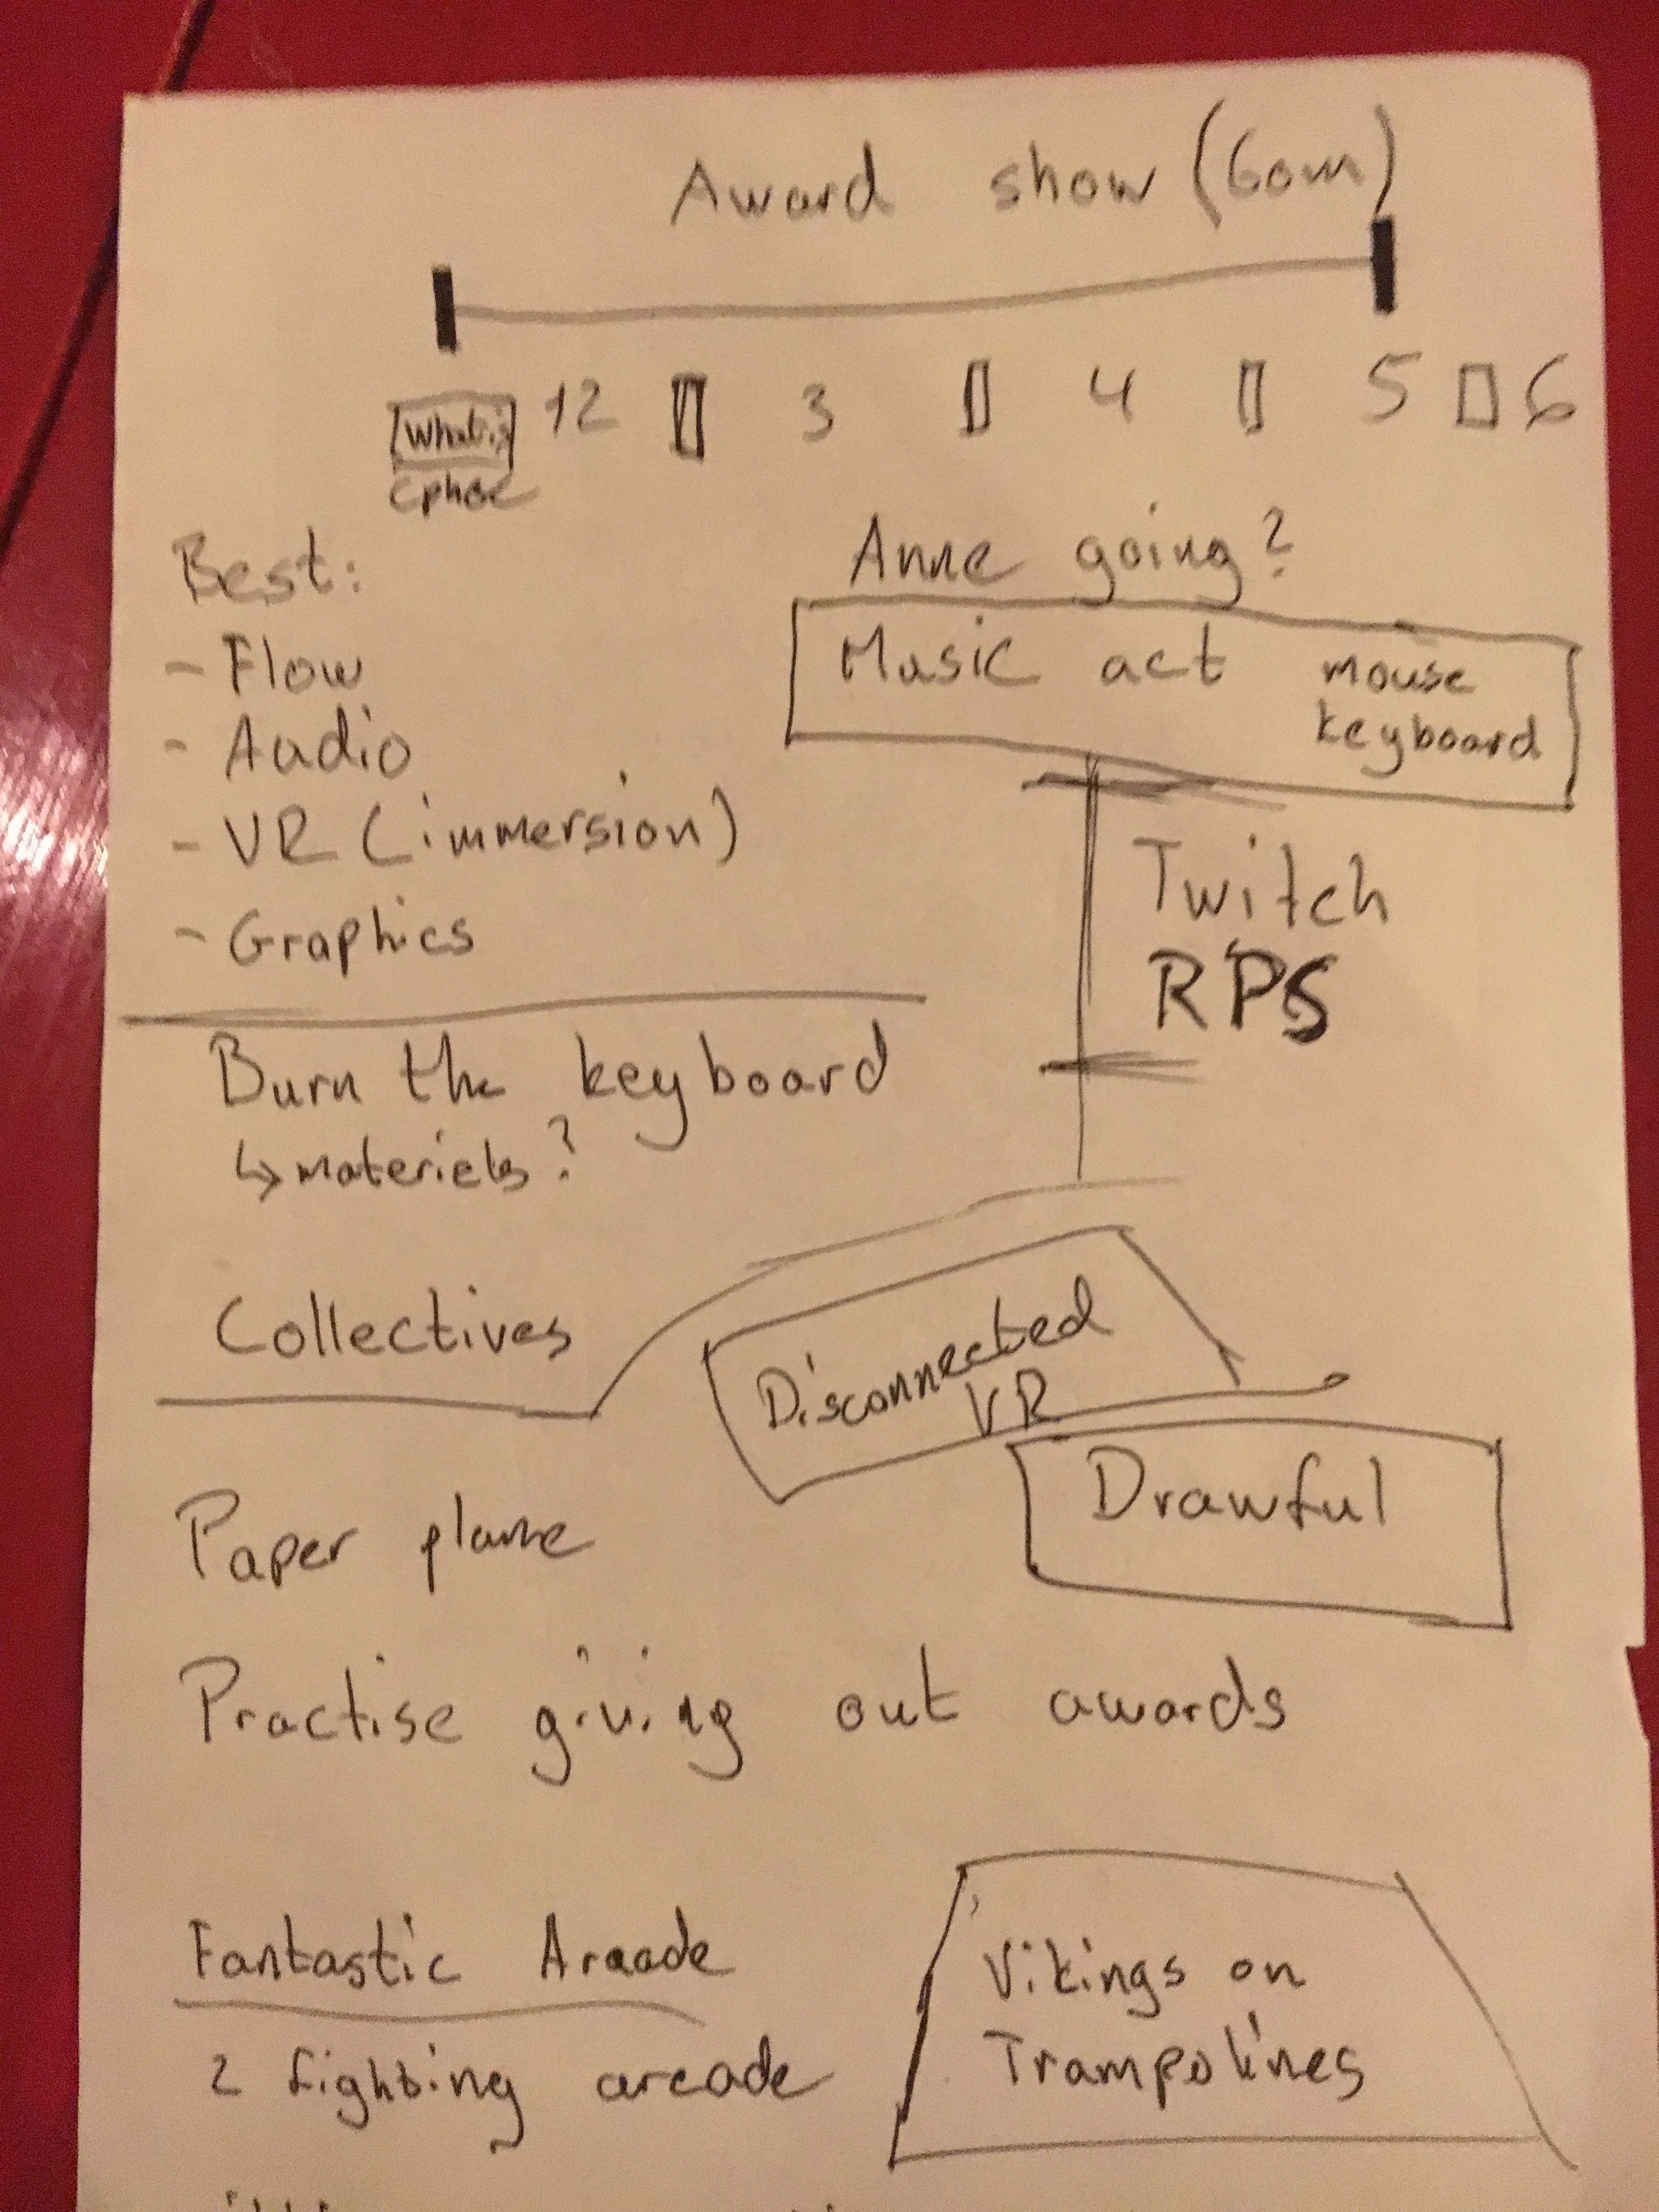 Award show (60m)
What is 12 3 4 5 6
Best:
Anne going?
- Flow
Music act mouse
keyboard
- Audio
- VR (immersion)
Twitch
RPS
- Graphics
Burn the keyboard
↳ materiels?
Collectives
Disconnected
VR
Drawful
Paper plane
Practise giving out awards
Fantastic Arcade
Vikings on
Trampolines
2 fighting arcade